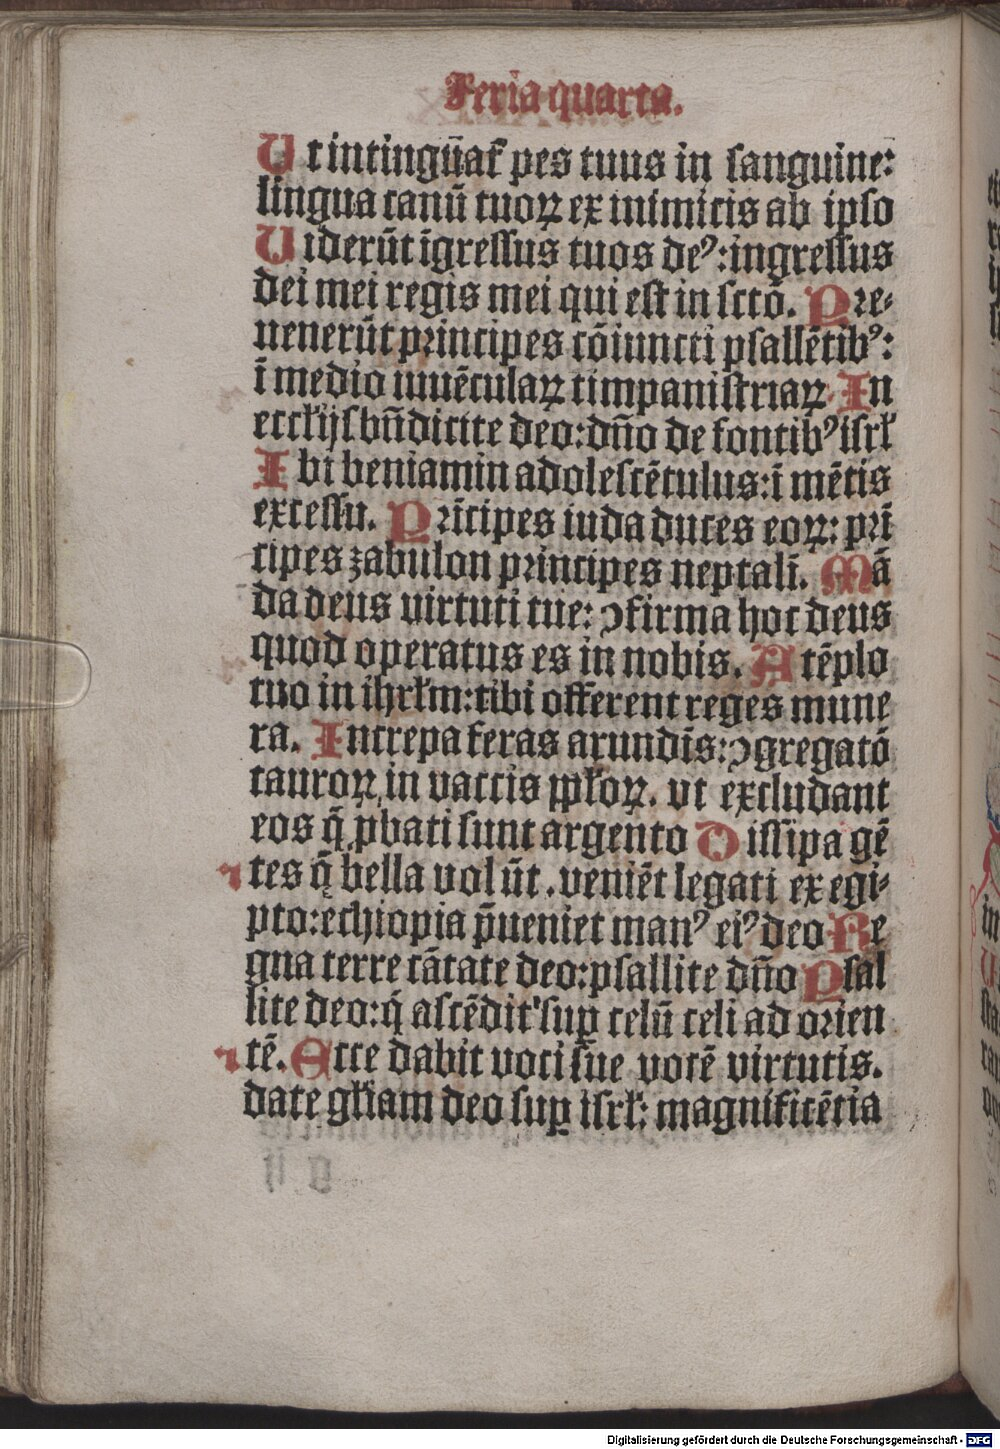 Feria quarta.
Ut intingūat᷑ pes tuus in sanguine:
lingua canū tuoꝝ ex inimicis ab ipso
Uiderūt īgressus tuos deꝰ: ingressus
dei mei regis mei qui est in sctō. Pre-
uenerūt principes cōiuncti psallētibꝰ:
ī medio iuuēculaꝝ timpanistriaꝝ In
eccłijs bn̄dicite deo: dn̄o de fontibꝰ isrł
Ibi beniamin adolescētulus: ī mētis
excessu. Prīcipes iuda duces eoꝝ: prī
cipes zabulon principes neptalī. Mā
da deus virtuti tue: ↄfirma hoc deus
quod operatus es in nobis. A tēplo
tuo in ihrłm: tibi offerent reges mune
ra. Increpa feras arundīs: ↄgregatō
tauroꝝ in vaccis ppłoꝝ. vt excludant
eos q̄ ꝓbati sunt argento Dissipa gē
tes q̄ bella volūt. veniēt legati ex egi-
pto: ethiopia p̄ueniet manꝰ eiꝰ deo Re
gna terre cātate deo: psallite dn̄o Psal
lite deo: q́ ascēdit sup̱ celū celi ad orien
tē. Ecce dabit voci sue vocē virtutis.
date głiam deo sup̱ isrł: magnificētia
Digitalisierung gefördert durch die Deutsche Forschungsgemeinschaft - DFG